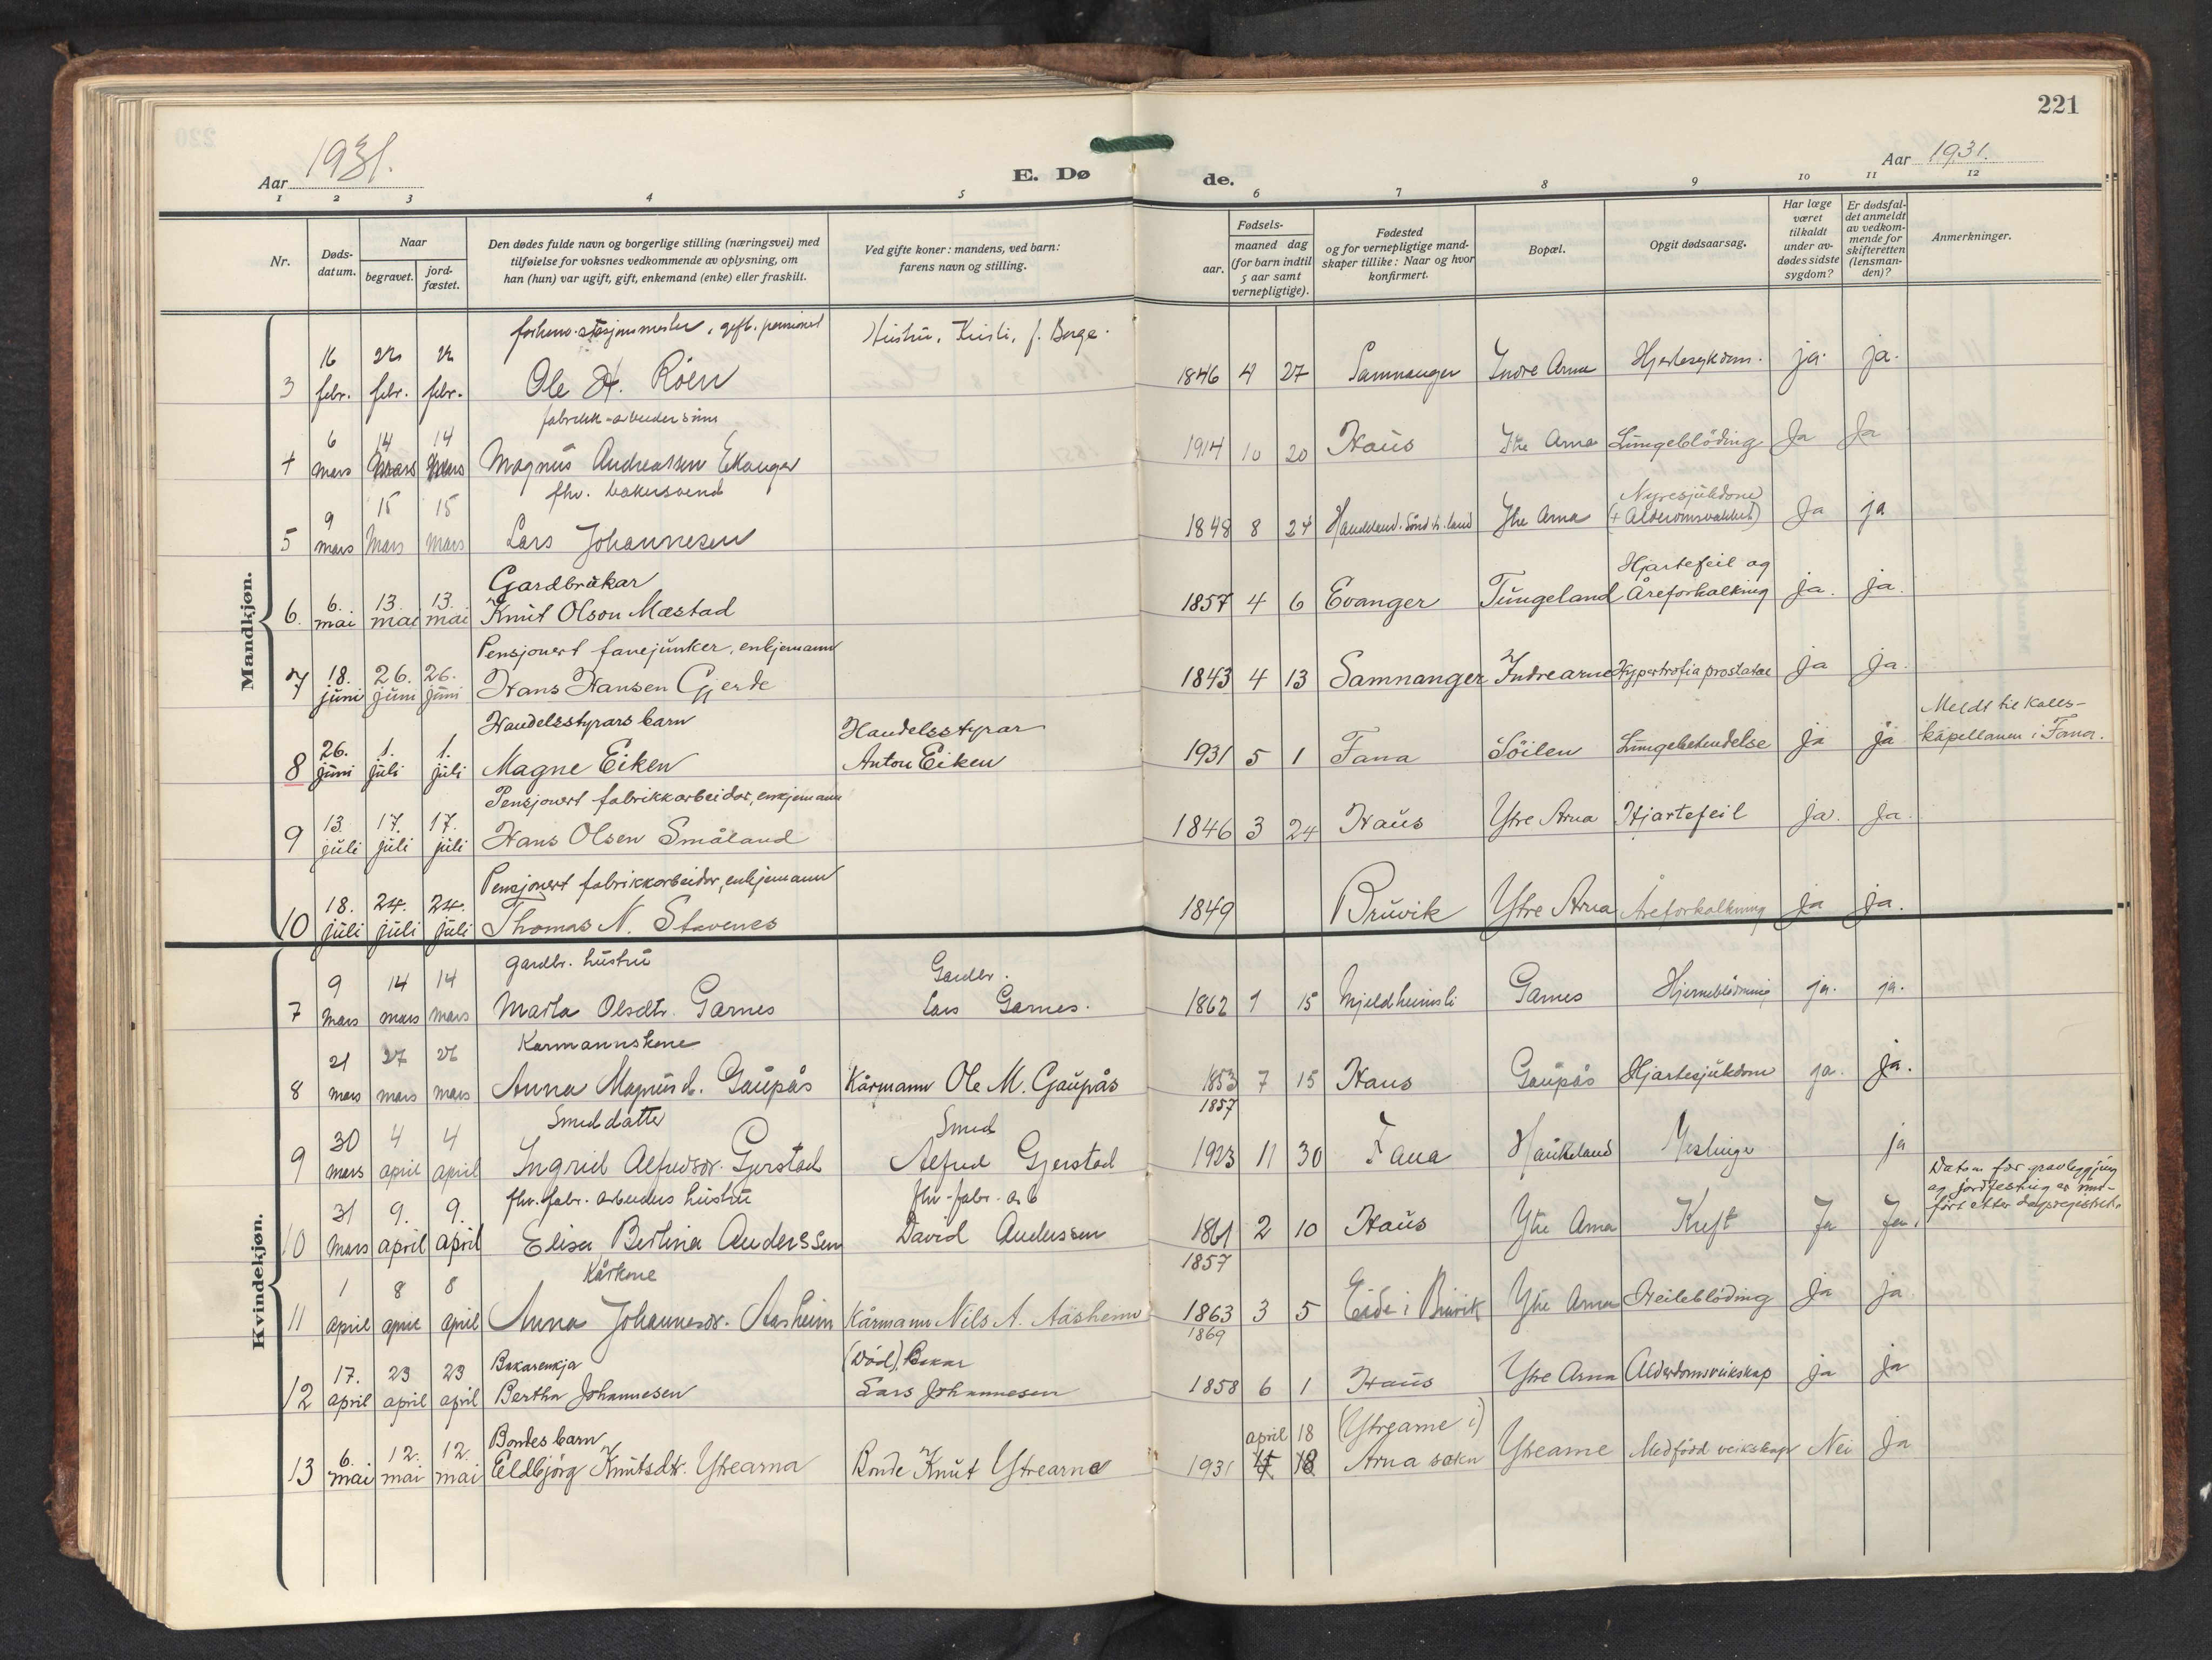 221
Aar 1931.
E. Dø
de.
Aar 1931.
1 2 3 4 5 6 7 8 9 10 11 12
Nr.
Døds-
datum.
Naar
begravet.
jord-
fæstet.
Den dødes fulde navn og borgerlige stilling (næringsvei) med
tilføielse for voksnes vedkommende av oplysning, om
han (hun) var ugift, gift, enkemand (enke) eller fraskilt.
Ved gifte koner: mandens, ved barn:
farens navn og stilling.
aar.
Fødsels-
maaned dag
(for barn indtil
5 aar samt
vernepligtige).
Fødested
og for vernepligtige mand-
skaper tillike: Naar og hvor
konfirmert.
Bopæl.
Opgit dødsaarsag.
Har læge
været
tilkaldt
under av-
dødes sidste
sygdom?
Er dødsfal-
det anmeldt
av vedkom-
mende for
skifteretten
(lensman-
den)?
Anmerkninger.
Mandkjøn.
forhenv. stasjonsmester, gift. pensionert Hustru, Kristi, f. Berge.
16 22 22
3 febr. febr. febr. Ole H. Röen 1846 4 27 Samnanger Indre Arna Hjertesykdom. ja. ja.
fabrikk-arbeider sönn
6 14 14
4 mars mars mars Magnus Andreassen Ekanger 1914 10 20 Haus Ytre Arna Lungeblöding Ja Ja
fhv. bakersvend
9 15 15 Nyresjukdom
5 mars Mars mars Lars Johannesen 1848 8 24 Ytre Arna (+ Alderdomsvakhet) Ja ja
Gardbrukar Hjartefeil og
6. 13. 13.
6. mai mai mai Knut Olson Mæstad 1857 4 6 Evanger Tungeland Åreforkalkning ja. ja.
Pensjonert fanejunker, enkjemann
18. 26. 26.
7 juni juni juni Hans Hansen Gjerde 1843 4 13 Samnanger Indrearne Hypertrofia prostatae ja ja.
Handelsstyrars barn Handelsstyrar Meldt til kalls-
26. 1. 1.
8 juni juli juli Magne Eiken Anton Eiken 1931 5 1 Fana Söilen Lungebetendelse ja ja kapellanen i Fana.
Pensjonert fabrikkarbeidar, enkjemann
13. 17. 17.
9 juli juli juli Hans Olsen Småland 1846 3 24 Haus Ytre Arna Hjartefeil ja. ja.
Pensjonert fabrikkarbeidar, enkjemann
18. 24. 24.
10 juli juli juli Thomas N. Stavenes 1849 Bruvik Ytre Arna Åreforkalkning ja ja.
Kvindekjøn.
gardbr. hustru Gardbr.
9 14 14
7 mars mars mars Marta Olsdtr. Garnes Lars Garnes. 1862 1 15 Mjeldheimsli Garnes Hjerneblödning ja. ja.
Kårmannskone
21 27 26
8 mars mars mars Anna Magnusd. Gaupås Kårmann Ole M. Gaupås 1853 7 15 Haus Gaupås Hjartesjukdom ja. ja.
1857
Smed datter Smed
30 4 4
9 mars april april Ingrid Alfredsdr. Gjerstad Alfred Gjerstad 1923 11 30 Fana Haukeland Meslinger ja
fhv. fabr. arbeiders hustru fhv. fabr. arb Datum for gravleggjing
31 9. 9. og jordfesting er inn-
10 Mars april april Elisa Bertina Anderssen David Anderssen 1861 2 10 Haus Ytre Arna Kreft Ja Ja. fört etter dagsregisteret.
1857
Kårkone
1 8 8
11 april april april Anna Johannesdr. Aasheim Kårmann Nils A. Aasheim 1863 3 5 Eide i Bruvik Ytre Arna Heileblöding Ja ja
1869
Bakarenkja (Död). Bakar
17. 23 23
12 april april april Bertha Johannesen Lars Johannesen 1858 6 1 Haus Ytre Arna Alderdomsveikskap ja ja
Bondes barn april 18 (Ytrearne i)
6. 12. 12.
13 mai mai mai Eldbjörg Knutsdtr. Ytrearna Bonde Knut Ytrearne 1931 18 Arna sokn Ytrearne Medfödd veikskap Nei Ja